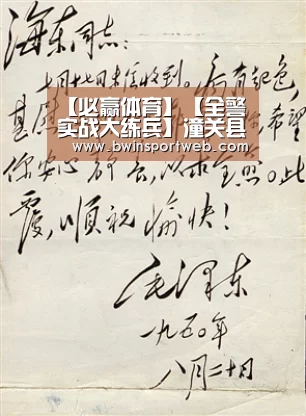 海东同志：
七月十七日来信收到。病有起色，
甚慰
希望
【必赢体育】【全警
实战大练兵】潼关县
www.bwinsportweb.com
你安心静养，以求全愈。此
覆，順祝 愉快！
毛泽东
一九五〇年
八月二十日